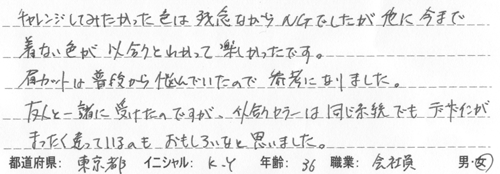 チャレンジしてみたかった色は残念ながらNGでしたが他に今まで
着ない色が似合うとわかって楽しかったです。
眉カットは普段から悩んでいたので参考になりました。
友人と一緒に受けたのですが、似合うカラーは同じ系統でもデザインが
まったく違っているのもおもしろいなと思いました。
都道府県: 東京都 イニシャル: K.Y 年齢: 36 職業: 会社員 男・女